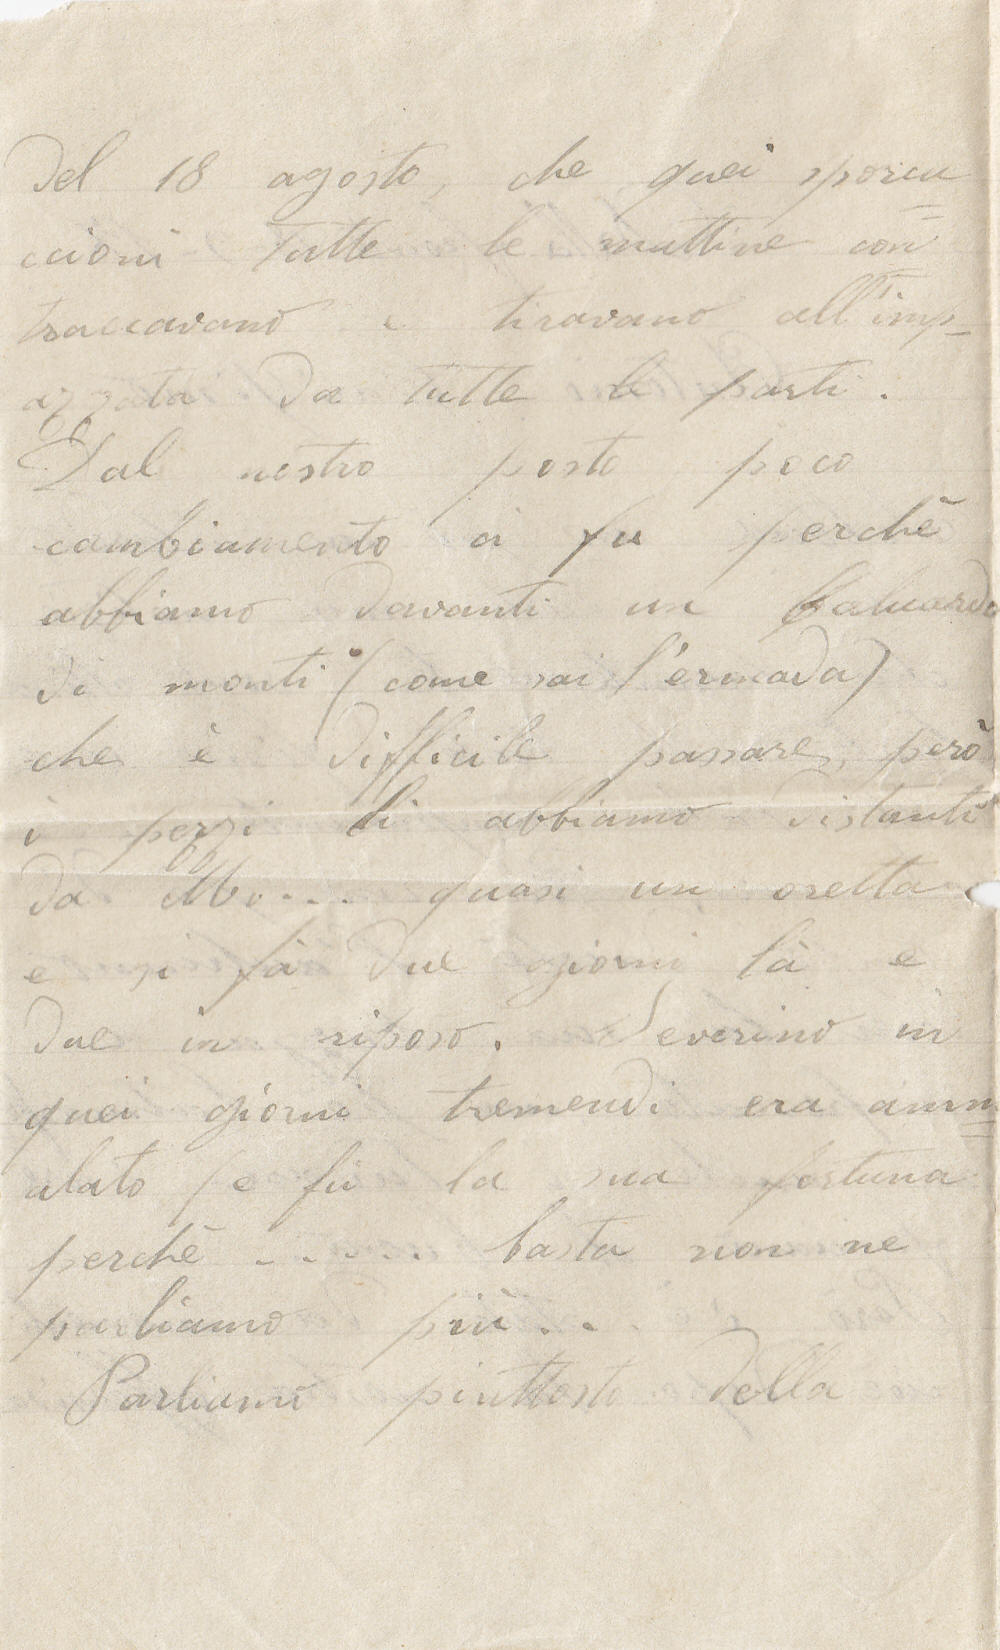 Del 18 agosto, che quei sporca
ccioni tutte le mattine con
traccavano e tiravano all'imp-
azzata da tutte le parti.
Dal nostro posto poco
cambiamento ci fu perchè
abbiamo davanti un baluardo
di monti (come sai l'ermada)
che è difficile passare, però
i pezzi li abbiamo distanti
da Mo... quasi un oretta
e si fà due giorni là e
due in riposo. Severino in
quei giorni tremendi era amm
alato (e fu la sua fortuna
perchè ..... basta non ne
parliamo più...
Parliamo piuttosto della